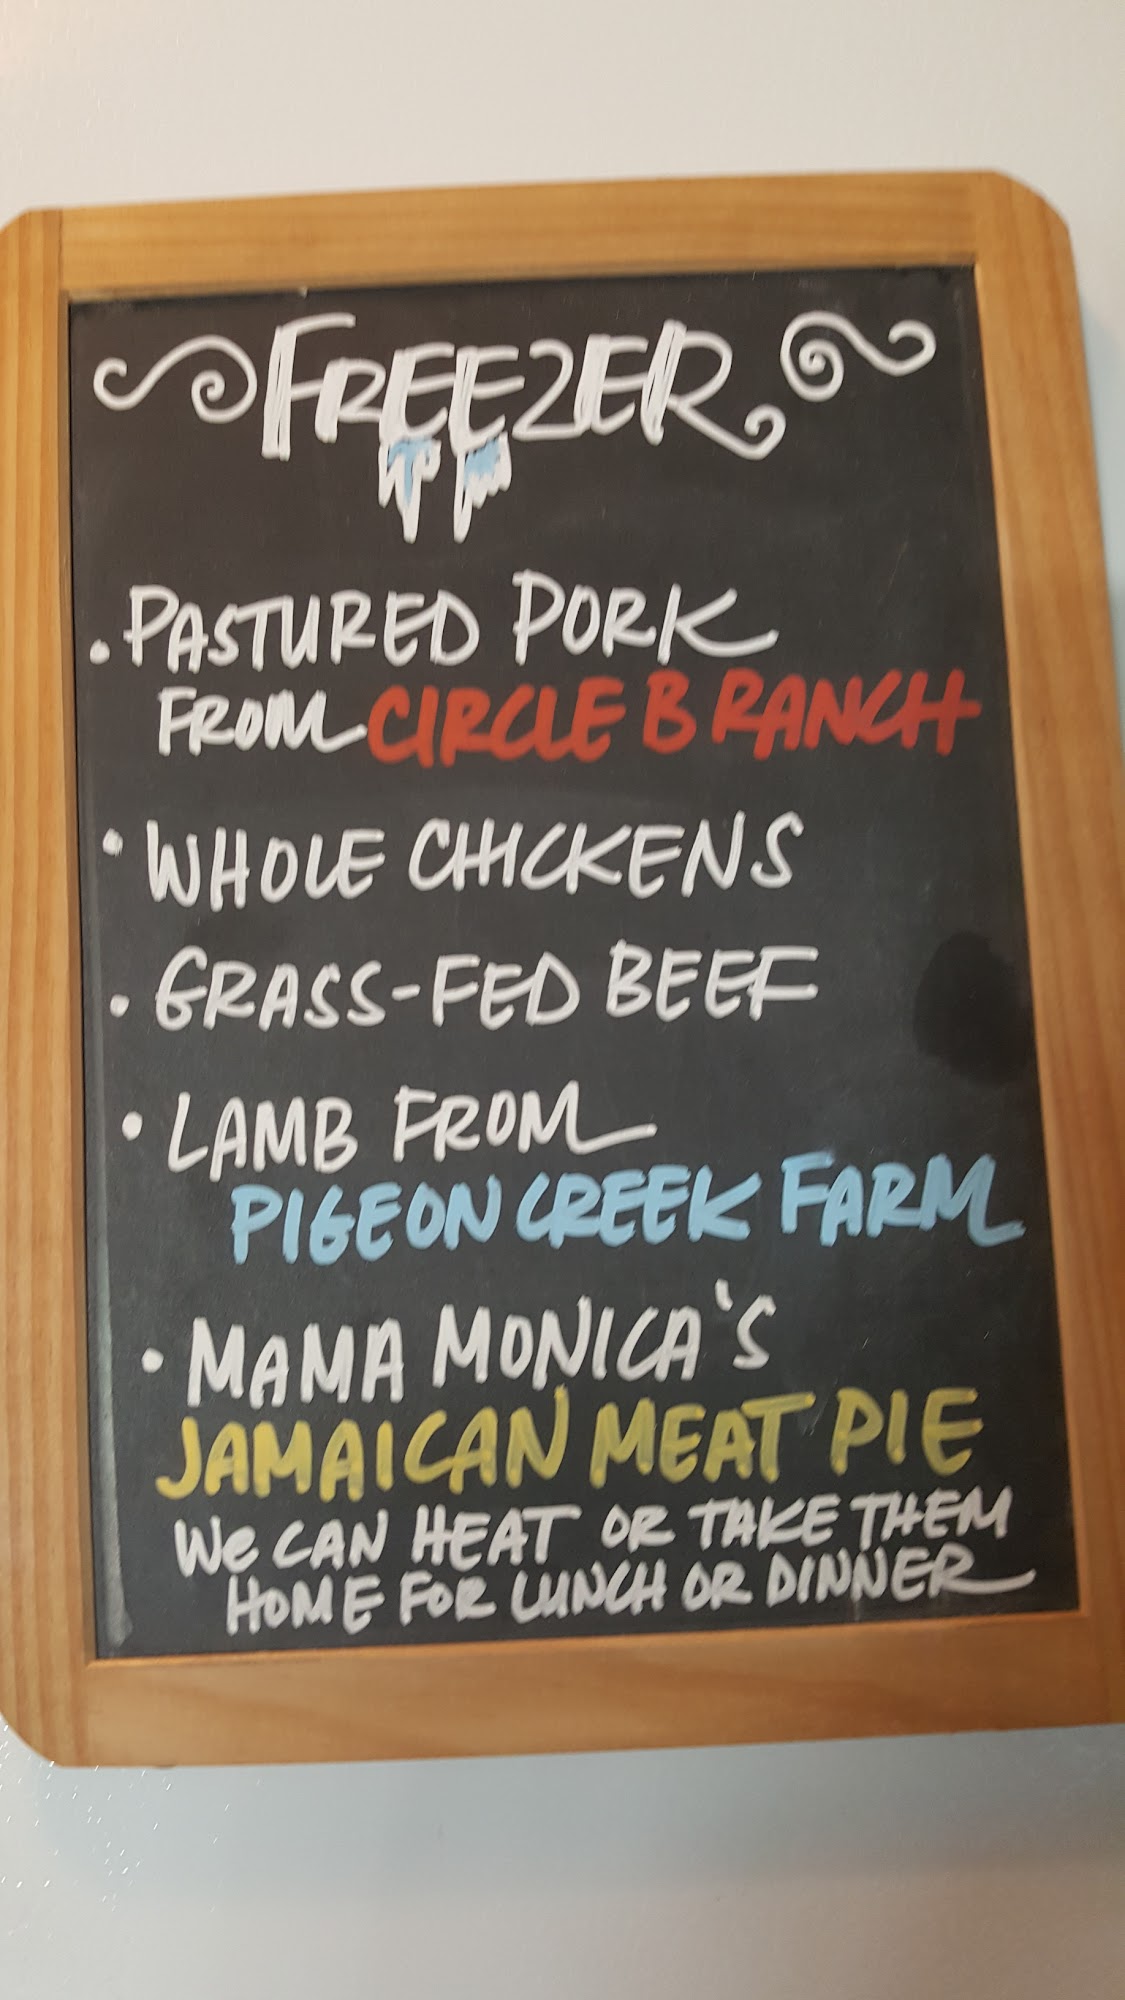 FREEZER
• PASTURED PORK
FROM CIRCLE B RANCH
• WHOLE CHICKENS
• GRASS-FED BEEF
• LAMB FROM
PIGEON CREEK FARM
• MAMA MONICA'S
JAMAICAN MEAT PIE
We CAN HEAT OR TAKE THEM
HOME FOR LUNCH OR DINNER